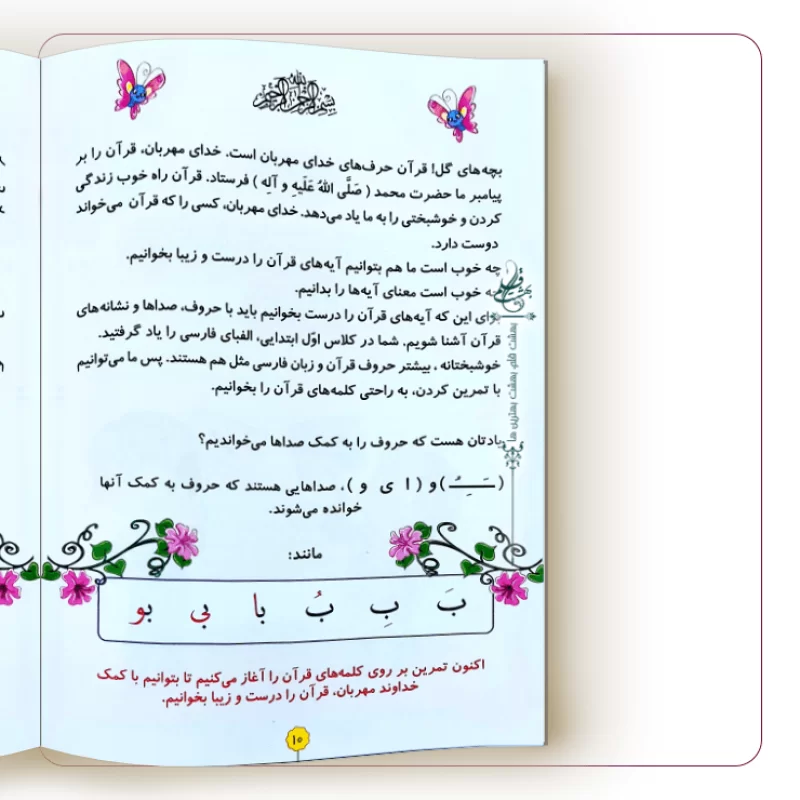 بسم الله الرحمن الرحیم
بچه‌های گل! قرآن حرف‌های خدای مهربان است. خدای مهربان، قرآن را بر
پیامبر ما حضرت محمد ( صَلَّی اللهُ عَلَیهِ و آلِه ) فرستاد. قرآن راه خوب زندگی
کردن و خوشبختی را به ما یاد می‌دهد. خدای مهربان، کسی را که قرآن می‌خواند
دوست دارد.
چه خوب است ما هم بتوانیم آیه‌های قرآن را درست و زیبا بخوانیم.
چه خوب است معنای آیه‌ها را بدانیم.
برای این که آیه‌های قرآن را درست بخوانیم باید با حروف، صداها و نشانه‌های
قرآن آشنا شویم. شما در کلاس اوّل ابتدایی، الفبای فارسی را یاد گرفتید.
خوشبختانه ، بیشتر حروف قرآن و زبان فارسی مثل هم هستند. پس ما می‌توانیم
با تمرین کردن، به راحتی کلمه‌های قرآن را بخوانیم.
یادتان هست که حروف را به کمک صداها می‌خواندیم؟
(ـَـِـُ) و ( ا ی و )، صداهایی هستند که حروف به کمک آنها
خوانده می‌شوند.
مانند:
بَ بِ بُ با بی بو
اکنون تمرین بر روی کلمه‌های قرآن را آغاز می‌کنیم تا بتوانیم با کمک
خداوند مهربان، قرآن را درست و زیبا بخوانیم.
۱۰
بهشت قلم
بهشت قلم بهشت بهترین ها